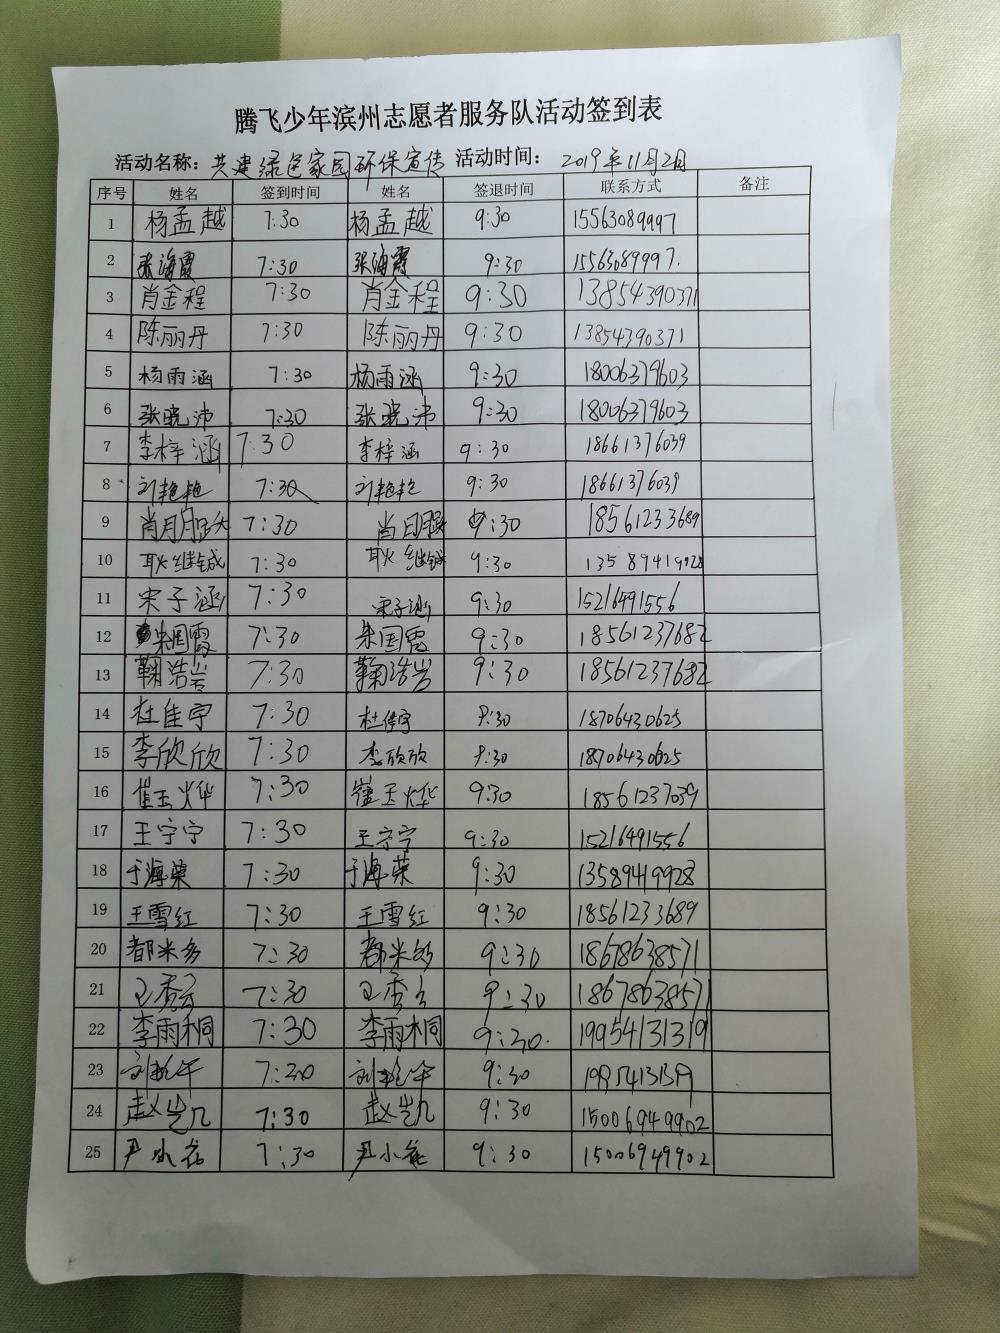 腾飞少年滨州志愿者服务队活动签到表
活动名称：共建绿色家园环保宣传 活动时间：2019年11月2日
序号 姓名 签到时间 姓名 签退时间 联系方式 备注
1 杨孟越 7:30 杨孟越 9:30 15563089997
2 张海霞 7:30 张海霞 9:30 15563089997.
3 肖金程 7:30 肖金程 9:30 13854390371
4 陈丽丹 7:30 陈丽丹 9:30 13854390371
5 杨雨涵 7:30 杨雨涵 9:30 18006379603
6 张晓沛 7:30 张晓沛 9:30 18006379603
7 李梓涵 7:30 李梓涵 9:30 18661376039
8 刘艳艳 7:30 刘艳艳 9:30 18661376039
9 7:30 9:30 18561233689
10 耿继铖 7:30 耿继铖 9:30 13589419928
11 宋子涵 7:30 宋子涵 9:30 15216491556
12 7:30 9:30 18561237682
13 鞠浩岩 7:30 鞠浩岩 9:30 18561237682
14 杜佳宇 7:30 杜佳宇 9:30 18706430625
15 李欣欣 7:30 李欣欣 9:30 18706430625
16 崔玉烨 7:30 崔玉烨 9:30 18561237039
17 王宁宁 7:30 王宁宁 9:30 15216491556
18 于海荣 7:30 于海荣 9:30 13589419928
19 王雪红 7:30 王雪红 9:30 18561233689
20 都米多 7:30 都米多 9:30 18678638571
21 7:30 9:30 18678638571
22 李雨桐 7:30 李雨桐 9:30. 19954131319
23 7:30 9:30 19954131319
24 赵岂凡 7:30 赵岂凡 9:30 15006949902
25 尹小花 7:30 尹小花 9:30 15006949902